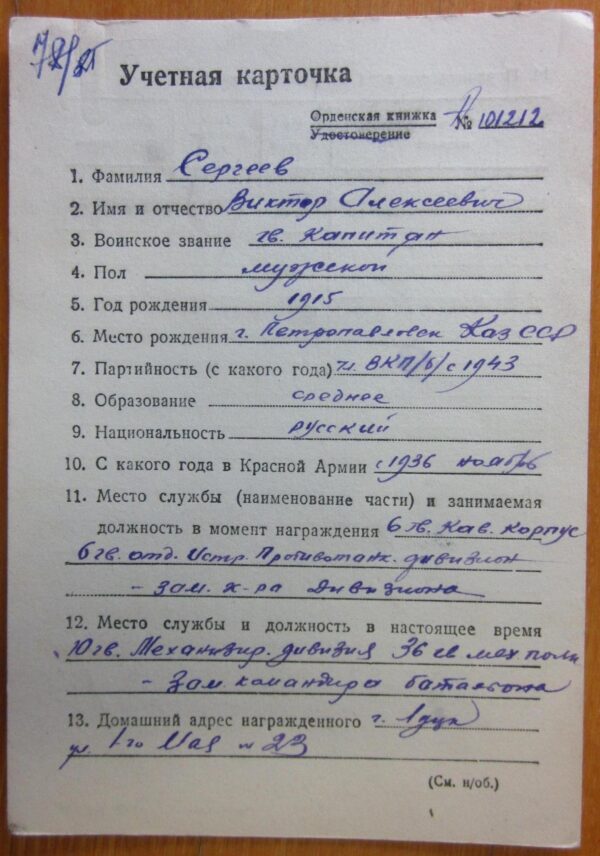 Учетная карточка
Орденская книжка
Удостоверение № 101212
1. Фамилия Сергеев
2. Имя и отчество Виктор Алексеевич
3. Воинское звание гв. капитан
4. Пол мужской
5. Год рождения 1915
6. Место рождения г. Петропавловск Каз ССР
7. Партийность (с какого года) чл. ВКП/б/ с 1943
8. Образование среднее
9. Национальность русский
10. С какого года в Красной Армии с 1936 ноябрь
11. Место службы (наименование части) и занимаемая
должность в момент награждения 6 гв. Кав. корпус
6 гв. отд. Истр. Противотанк. дивизион
- зам. к-ра дивизиона
12. Место службы и должность в настоящее время
10 гв. Механизир. дивизия 36 гв мех полк
- Зам. командира батальона
13. Домашний адрес награжденного г.
ул. 1го Мая № 23
(См. н/об.)